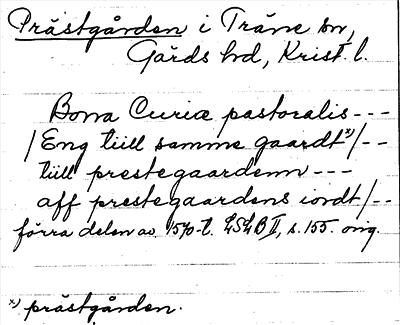 Prästgården i Träne sn,
Gärds hd, Krist. l.
Bona Curiæ pastoralis ---
/Eng tiill samme gaardt x)/--
tiill prestegaardenn ---
aff prestegaardens iordt/--
förra delen av 1570-t. LSLB II, s. 155. orig.
x) prästgården.